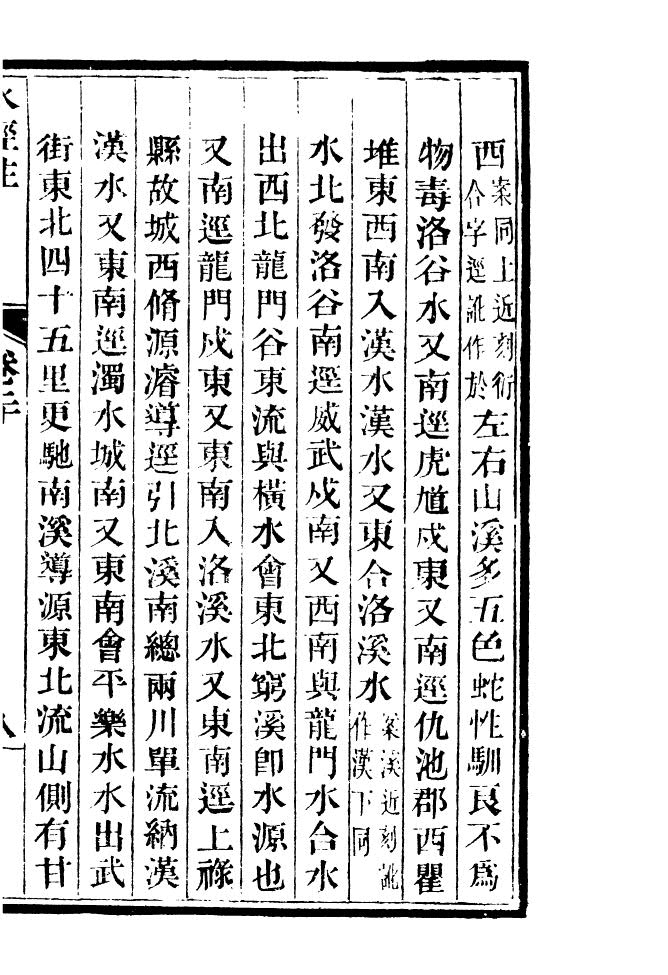 西案同上近刻衍仚字逕訛作於左右山溪多五色蛇性馴良不爲
物毒洛谷水又南逕虎馗戍東又南逕仇池郡西瞿
堆東西南入漢水漢水又東合洛溪水案溪近刻訛作漢下同
水北發洛谷南逕威武戍南又西南與龍門水合水
出西北龍門谷東流與橫水會東北窮溪卽水源也
又南逕龍門戍東又東南入洛溪水又東南逕上祿
縣故城西脩源濬導逕引北溪南總兩川單流納漢
漢水又東南逕濁水城南又東南會平樂水水出武
街東北四十五里更馳南溪導源東北流山側有甘
水經注
卷二十
八